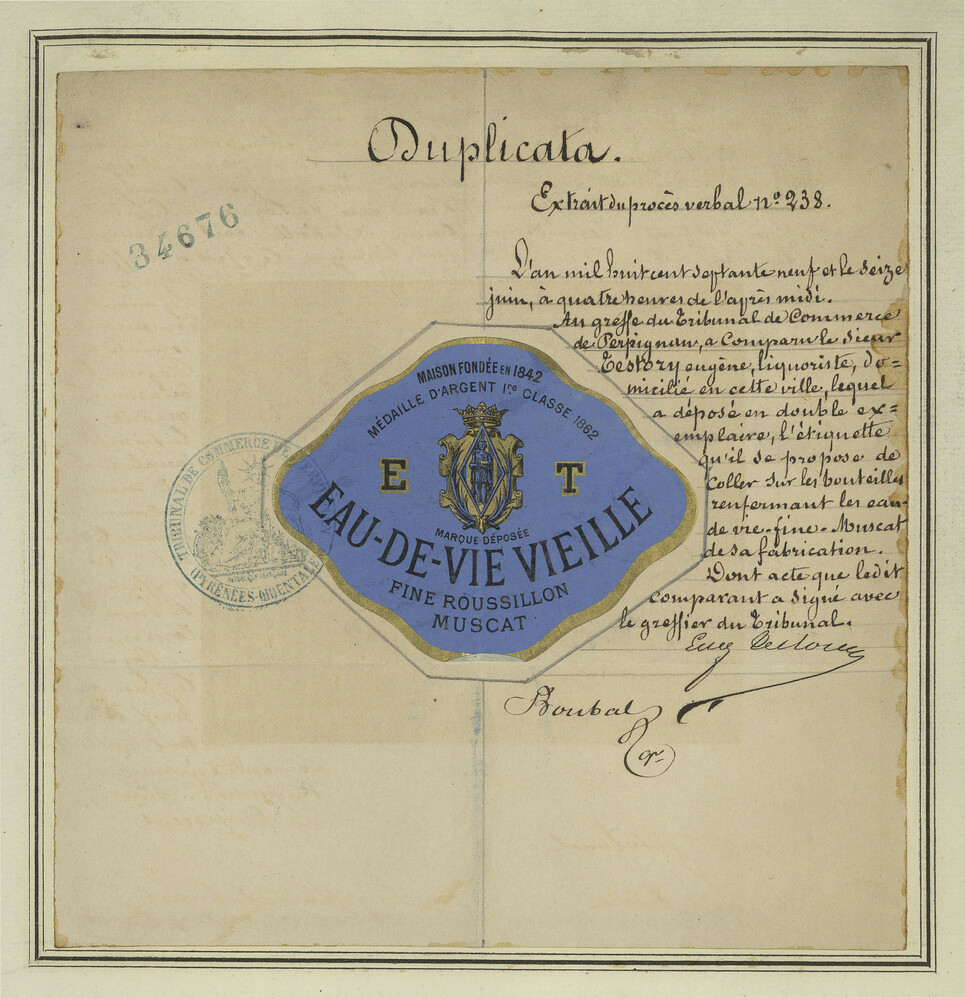 Duplicata.
Extrait du procès verbal nº 238.
34676
L'an mil huit cent septante neuf et le seize
juin, à quatre heures de l'après midi.
Au greffe du Tribunal de Commerce
de Perpignan, a Comparu le sieur
Testory eugène, liquoriste, do=
micilié en cette ville, lequel
a déposé en double ex=
emplaire, l'étiquette
qu'il se propose de
coller sur les bouteilles
renfermant les eau-
de vie-fine-Muscat
de sa fabrication.
Dont acte que ledit
comparant a signé avec
le greffier du Tribunal.
Eug Testory
Boubal
gr
MAISON FONDÉE EN 1842
MÉDAILLE D'ARGENT 1re CLASSE 1862
E T
MARQUE DÉPOSÉE
EAU-DE-VIE VIEILLE
FINE ROUSSILLON
MUSCAT
TRIBUNAL DE COMMERCE DE
(PYRÉNÉES-ORIENTALE